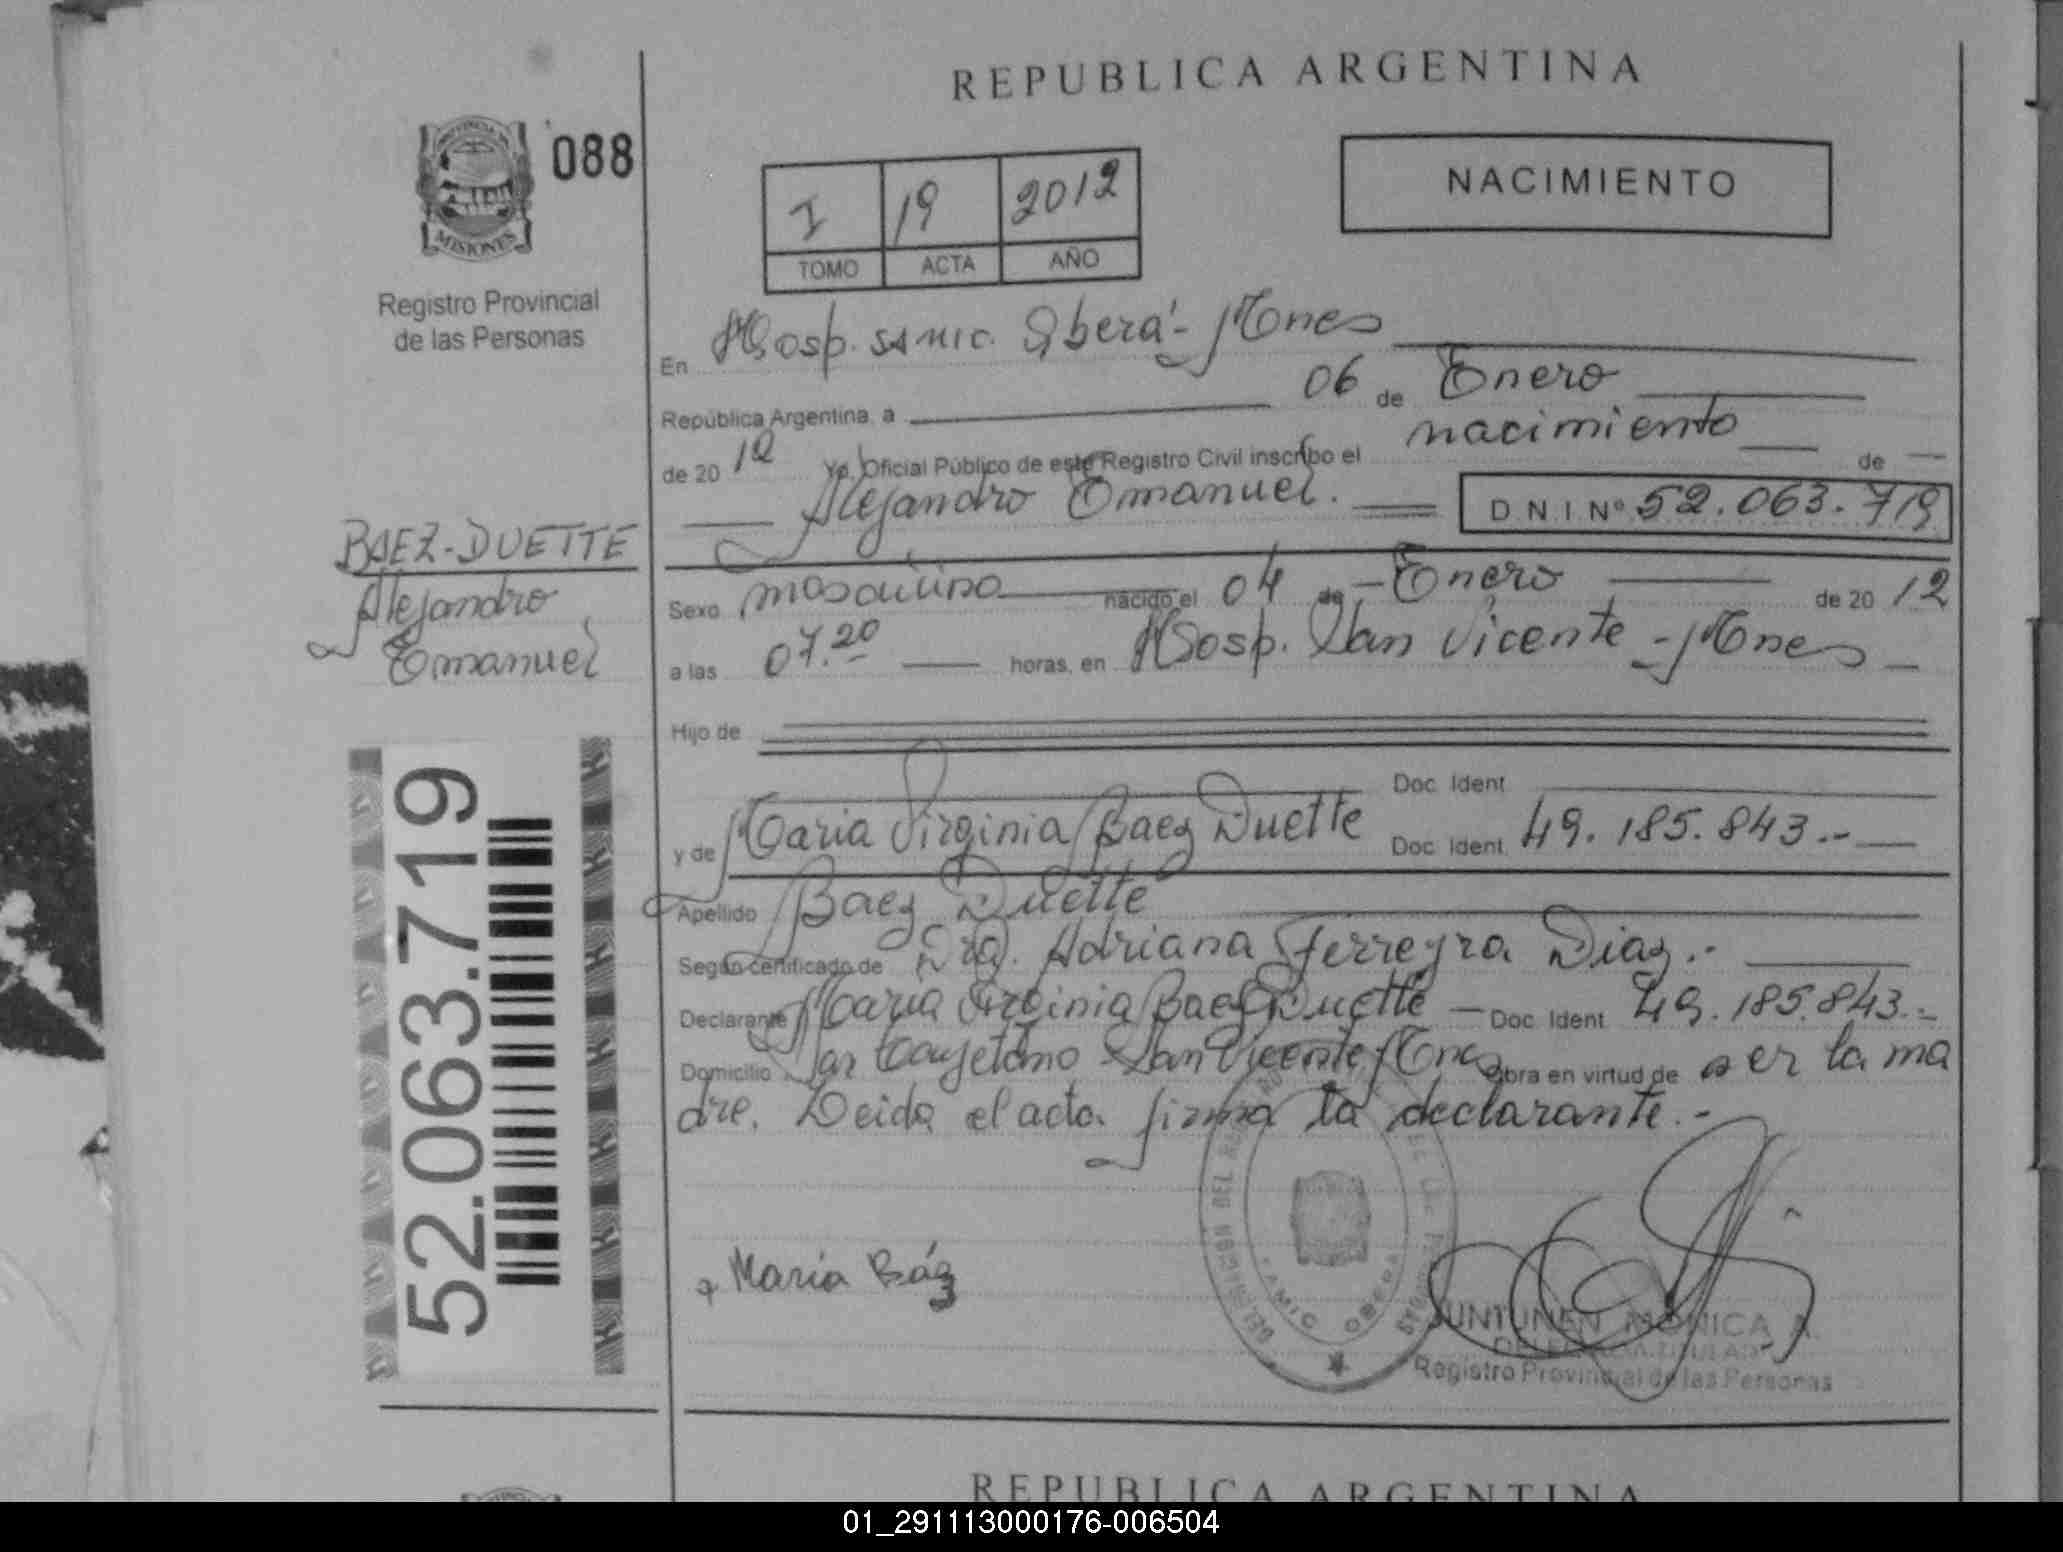 REPUBLICA ARGENTINA
PROVINCIA DE
MISIONES
088
Registro Provincial
de las Personas
I 19 2012
TOMO ACTA AÑO
NACIMIENTO
En Hosp. SAMIC. Oberá - Mnes
República Argentina, a 06 de Enero
de 2012 Yo, Oficial Público de este Registro Civil inscribo el nacimiento de
Alejandro Emanuel. D.N.I Nº 52.063.719
BAEZ-DUETTE
Alejandro
Emanuel
Sexo masculino nacido el 04 de Enero de 2012
a las 07.20 horas, en Hosp. San Vicente - Mnes
Hijo de
Doc. Ident.
y de Maria Virginia Baez Duette Doc. Ident. 49.185.843.-
Apellido Baez Duette
Según certificado de Dra. Adriana Ferreyra Diaz.-
Declarante Maria Virginia Baez Duette - Doc. Ident. 49.185.843.-
Domicilio San Cayetano San Vicente Mnes Obra en virtud de ser la ma
dre. Leida el acta firma la declarante.-
52.063.719
María Báez
AMIC OBERA
JUNTUNEN MONICA A.
Registro Provincial de las Personas
REPUBLICA ARGENTINA
01_291113000176-006504